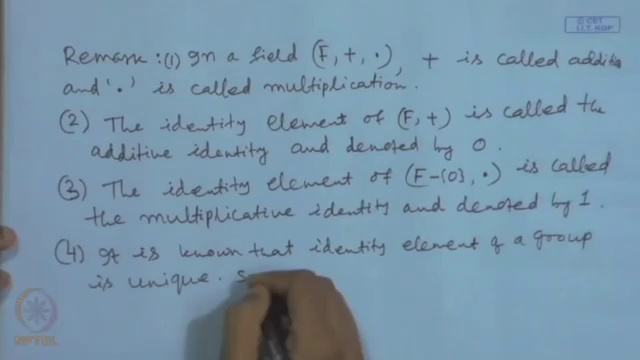 © CET
I.I.T. KGP
Remark : (1) In a field (F, +, ·), + is called additio
and '·' is called multiplication.
(2) The identity element of (F, +) is called the
additive identity and denoted by 0.
(3) The identity element of (F-{0}, ·) is called
the multiplicative identity and denoted by 1.
(4) It is known that identity element of a group
is unique. S
NPTEL